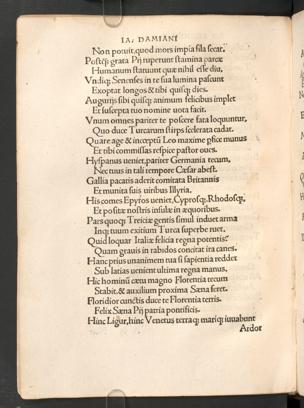 IA. DAMIANI
Non potuit, quod mors impia fila secat.
Postq̃; grata Pij ruperunt stamina parcæ
Humanum statuunt quæ nihil esse diu.
Vndiq; Senenses in te sua lumina pascunt
Exoptat longos & tibi quisq; dies.
Auguriis sibi quisq; animum felicibus implet
Et suscepta tuo nomine uota facit.
Vnum omnes pariter te poscere fata loquuntur,
Quo duce Turcarum stirps scelerata cadat.
Quare age & inceptũ Leo maxime psice munus
Et tibi commissas respice pastor oues.
Hyspanus ueniet, pariter Germania tecum,
Nec tuus in tali tempore Cæsar abest.
Gallia pacatis aderit comitata Britannis
Et munita suis uiribus Illyria.
His comes Epyros ueniet, Cyprosq;, Rhodosq;,
Et positæ nostris insulæ in æquoribus.
Pars quoq; Treiciæ gentis simul induet arma
Inq; tuum exitium Turca superbe ruet.
Quid loquar Italiæ felicia regna potentis?
Quam grauis in rabidos concitat ira canes.
Hanc prius unanimem tua si sapientia reddet
Sub latias uenient ultima regna manus.
Hic hominũ cætu magno Florentia tecum
Stabit, & auxilium proxima Sæna feret.
Floridior cunctis duce te Florentia terris.
Felix Sæna Pij patria pontificis.
Hinc Ligur, hinc Venetus terraq; mariq; iuuabunt
Ardor